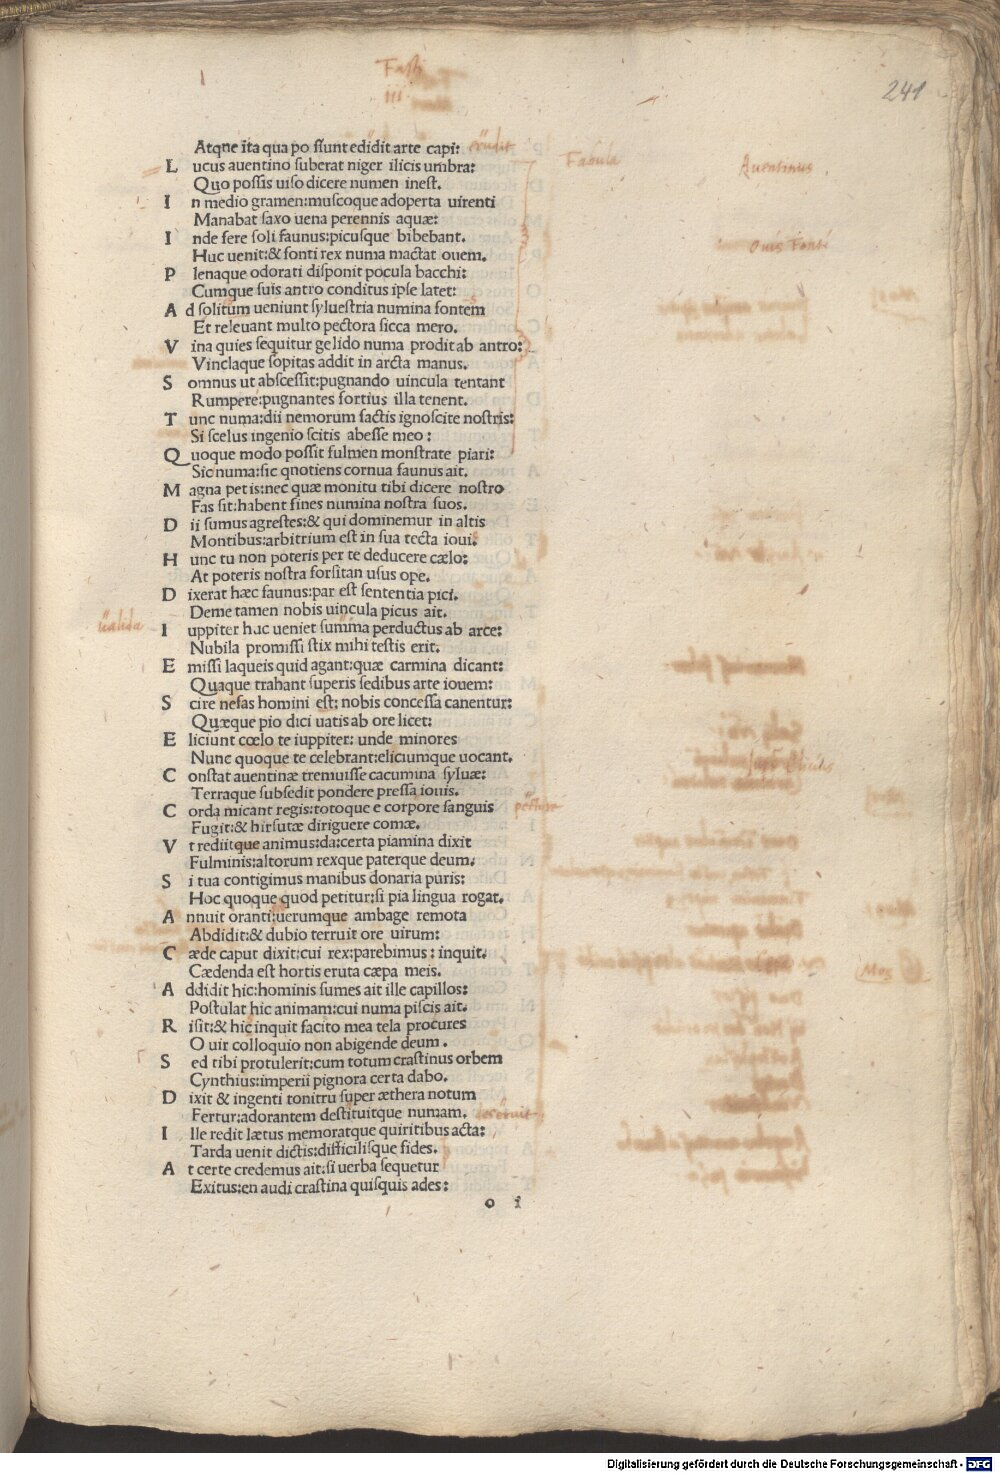 Fasti
III
241
Atqne ita qua po ssunt edidit arte capi: erudit
L ucus auentino suberat niger ilicis umbra: Fabula Auentinus
Quo possis uiso dicere numen inest.
I n medio gramen:muscoque adoperta uirenti
Manabat saxo uena perennis aquæ:
I nde fere soli faunus:picusque bibebant. Ouis Fonti
Huc uenit:& fonti rex numa mactat ouem.
P lenaque odorati disponit pocula bacchi:
Cumque suis antro conditus ipse latet:
A d solitum ueniunt syluestria numina fontem
Et releuant multo pectora sicca mero.
V ina quies sequitur gelido numa prodit ab antro:
Vinclaque sopitas addit in arcta manus.
S omnus ut abscessit:pugnando uincula tentant
Rumpere:pugnantes fortius illa tenent.
T unc numa:dii nemorum factis ignoscite nostris:
Si scelus ingenio scitis abesse meo:
Q uoque modo possit fulmen monstrate piari:
Sic numa:sic qnotiens cornua faunus ait.
M agna petis:nec quæ monitu tibi dicere nostro
Fas sit:habent fines numina nostra suos.
D ii sumus agrestes:& qui dominemur in altis
Montibus:arbitrium est in sua tecta ioui.
H unc tu non poteris per te deducere cælo:
At poteris nostra forsitan usus ope.
D ixerat hæc faunus:par est sententia pici.
Deme tamen nobis uincula picus ait.
ualida I uppiter huc ueniet summa perductus ab arce:
Nubila promissi stix mihi testis erit.
E missi laqueis quid agant:quæ carmina dicant:
Quaque trahant superis sedibus arte iouem:
S cire nefas homini est: nobis concessa canentur:
Quæque pio dici uatis ab ore licet:
E liciunt cœlo te iuppiter: unde minores
Nunc quoque te celebrant:eliciumque uocant.
C onstat auentinæ tremuisse cacumina syluæ:
Terraque subsedit pondere pressa iouis.
C orda micant regis:totoque e corpore sanguis pectore
Fugit:& hirsutæ diriguere comæ.
V t rediitque animus:da:certa piamina dixit
Fulminis:altorum rexque paterque deum.
S i tua contigimus manibus donaria puris:
Hoc quoque quod petitur:si pia lingua rogat.
A nnuit oranti:uerumque ambage remota
Abdidit:& dubio terruit ore uirum:
C æde caput dixit:cui rex:parebimus: inquit. Mos
Cædenda est hortis eruta cæpa meis.
A ddidit hic:hominis sumes ait ille capillos:
Postulat hic animam:cui numa piscis ait.
R isit:& hic inquit facito mea tela procures
O uir colloquio non abigende deum.
S ed tibi protulerit:cum totum crastinus orbem
Cynthius:imperii pignora certa dabo.
D ixit & ingenti tonitru super æthera notum
Fertur:adorantem destituitque numam. deseruit
I lle redit lætus memoratque quiritibus acta:
Tarda uenit dictis:difficilisque fides.
A t certe credemus ait:si uerba sequetur
Exitus:en audi crastina quisquis ades:
o i
Digitalisierung gefördert durch die Deutsche Forschungsgemeinschaft - DFG